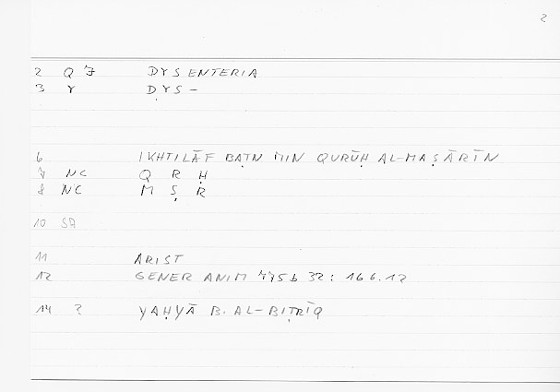 2
2 Q7 DYSENTERIA
3 Y ḌYS-
6 IKHTILĀF BAṬN MIN QURŪḤ AL-MAṢĀRĪN
7 NC Q R Ḥ
8 NC M Ṣ R
10 SA
11 ARIST
12 GENER ANIM 775b 32: 166.12
14 ? YAḤYĀ B. AL-BIṬRĪQ